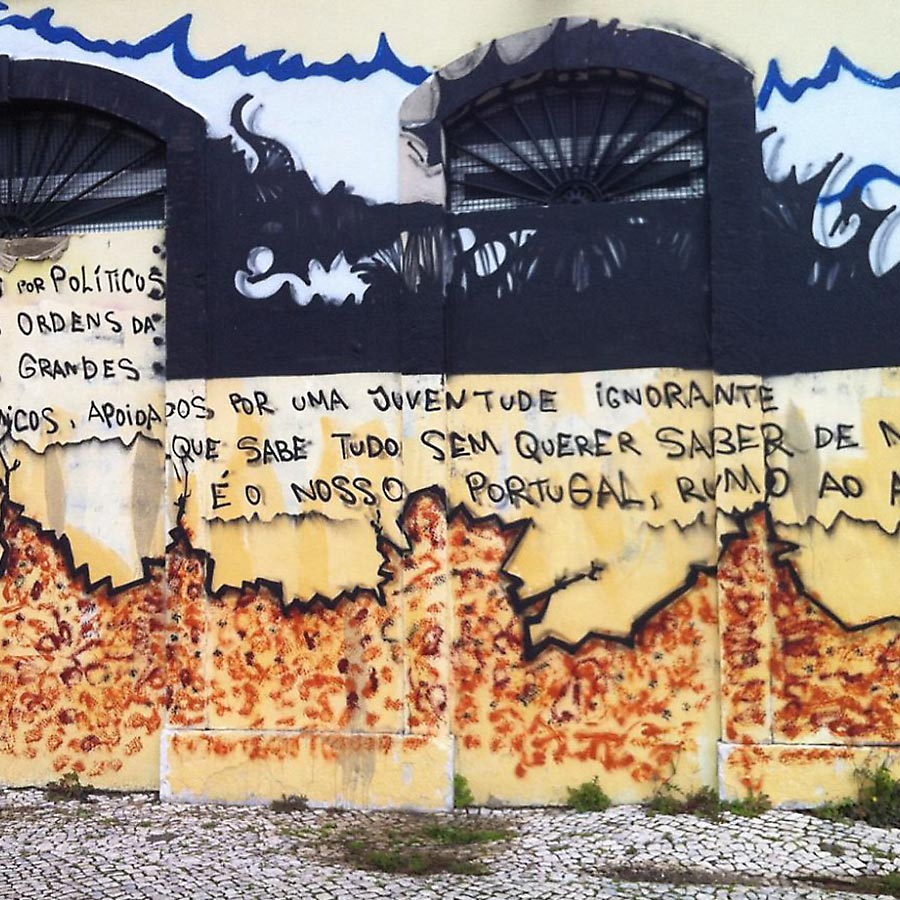 POR POLÍTICOS
ORDENS DA
GRANDES
APOIADOS, POR UMA JUVENTUDE IGNORANTE
QUE SABE TUDO SEM QUERER SABER DE
É O NOSSO PORTUGAL, RUMO AO